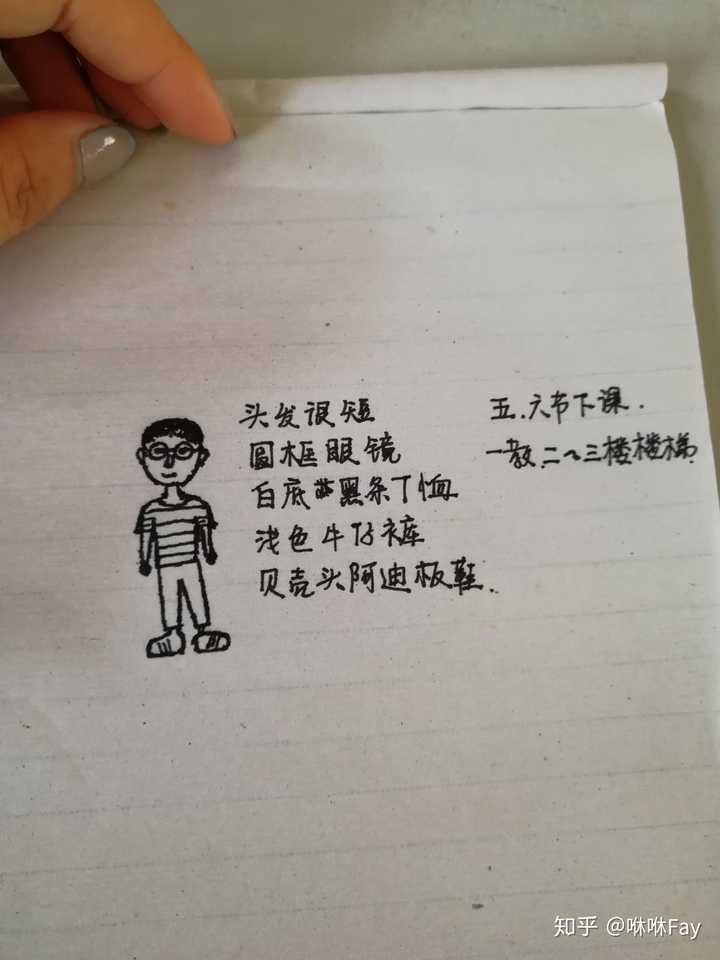 头发很短
圆框眼镜
白底黑条丁恤
浅色牛仔裤
贝壳头阿迪板鞋.
五.六节下课.
一教.二~三楼楼梯.
知乎 @咻咻Fay